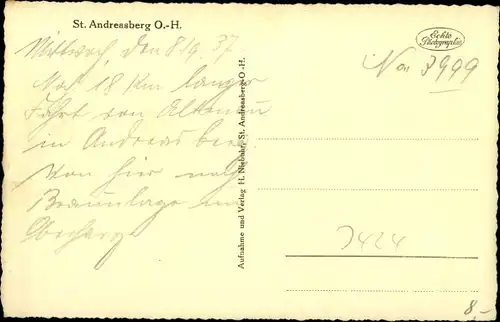 St. Andreasberg O.-H.
Mittwoch, den 8/9. 37
Nach 18 Km langer
Fahrt von Altenau
in Andreasberg.
Von hier nach
Braunlage
Oberharz
Aufnahme und Verlag H. Niebuhr, St. Andreasberg-O.-H.
Echte
Photographie
3999
7424
8,-